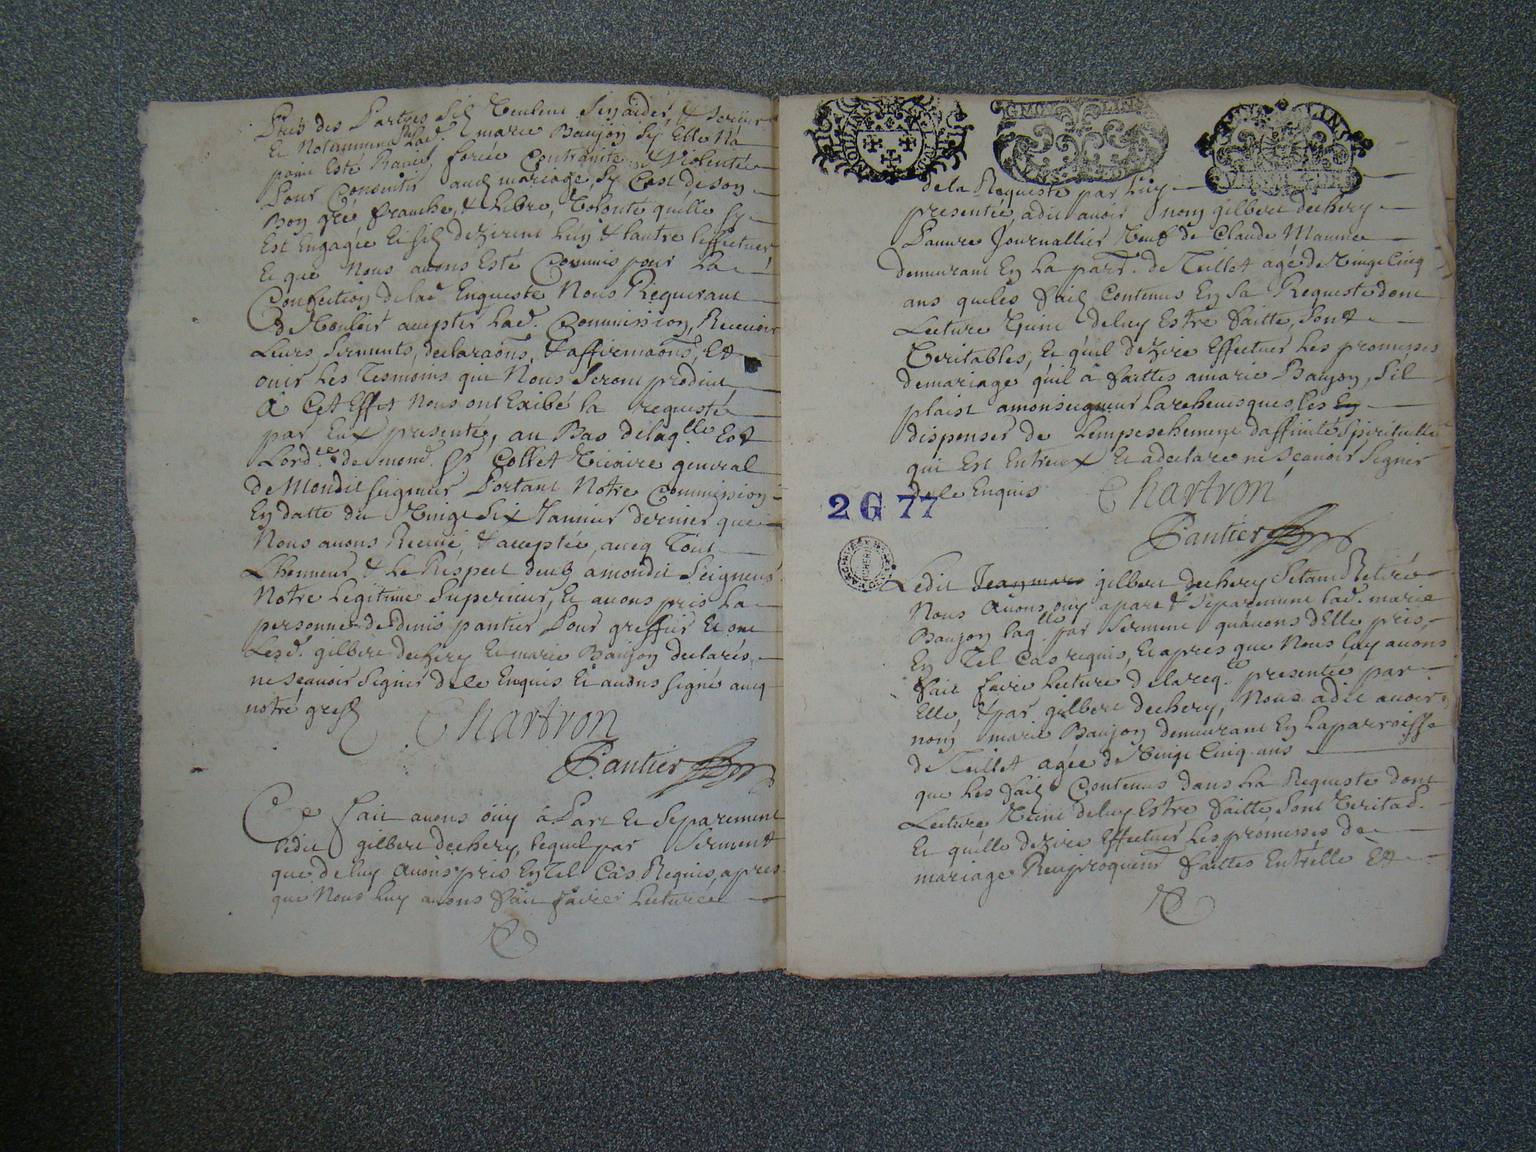 Près des Parties Sil Veulent Sen aider, & Servir
Et Notamment Si lad. marie Baujon Sy Elle Na
point Esté Ravie, forcée Contrainte ne Violentée
Pour Consentir aud mariage, Sy Cest de son
Bon gré franche, & Libre, Volonté quelle Sy
Est Engagée Et Sils dezirent Lun & Lautre Leffectuer
Et que Nous avons Esté Commis pour La
Confection de lad Enqueste Nous Requerant
de Vouloir accepter Lad. Commission, Recevoir
Leurs Serments, declaraons, & affirmaons, Et
ouir Les Tesmoins qui Nous Seront produit
A Cet Effet Nous ont Exibé la requeste
par Eux presentée, au Bas de laqlle Est
Lordce de mond. Sr Collet Vicaire general
de Mondit Seigneur Portant Notre Commission
En datte du Vingt Six Janvier dernier que
Nous avons Receue, & acceptée, avecq Tout
Lhonneur & Le Respect deub a mondit Seigneur
Notre Legitime Superieur, Et avons pris La
personne de denis pantier Pour greffier Et ont
Lesd. gilbert dechery Et marie Baujon declarés,
ne Scavoir Signer de Ce Enquis Et avons Signé avecq
notre greff
Chartron
P. antier
Ce fait avons ouy à Part Et Separement
ledit gilbert dechery, lequel par Serment
que de luy avons pris En tel Cas Requis, apres
que Nous Luy avons fait faire Lecture
2 G 77
de la Requeste par Luy
presentée, a dit avoir nom gilbert dechery
Pauvre Journallier Veuf de Claude Maume
demeurant En La parr. de Teillet agé de Vingt Cinq
ans que les faits Contenus En Sa Requeste dont
Lecture Vient de luy Estre faitte, Sont
Veritables, Et quil dezire Effectuer Les promesses
de mariage quil a faittes a marie Baujon, Sil
plaist a monseigneur Larchevesque, les En
dispenser de Lempeschement daffinité Spirituelle
qui Est Entreux Et a declaré ne Scavoir Signer
de Ce Enquis
Chartron
P. antier
Ledit Jean mar gilbert dechery Setant Retiré
Nous avons ouy a part & Separement lad. marie
Baujon laqlle par Serment quavons dElle pris,
En Tel Cas requis, Et apres que Nous Luy avons
fait faire Lecture de la reqte presentée par
Elle, & par gilbert dechery, Nous a dit avoir
nom marie Baujon demeurant En La parroisse
de Teillet agée de Vingt Cinq ans
que Les faits Contenus dans La Requeste dont
Lecture Vient de luy Estre faitte, Sont Veritab.
Et quelle dezire Effectuer Les promesses de
mariage Reciproquemt faittes Entrelle Et